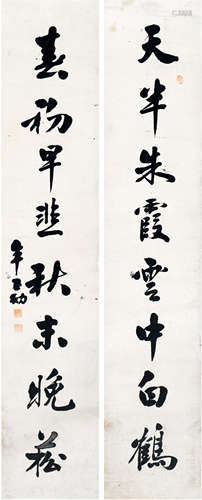 天半朱霞雲中白鶴
春初早韭秋末晚菘